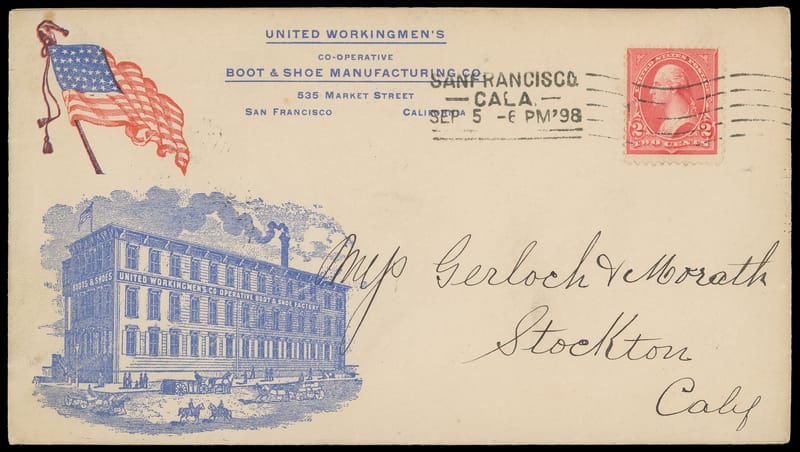 UNITED WORKINGMEN'S
CO-OPERATIVE
BOOT & SHOE MANUFACTURING CO.
535 MARKET STREET
SAN FRANCISCO CALIFORNIA
SAN FRANCISCO.
CALA.
SEP 5 -6 PM '98
UNITED STATES POSTAGE
2 2
TWO CENTS
BOOTS & SHOES
UNITED WORKINGMEN'S CO OPERATIVE BOOT & SHOE FACTORY
Gerloch & Morath
Stockton
Calif